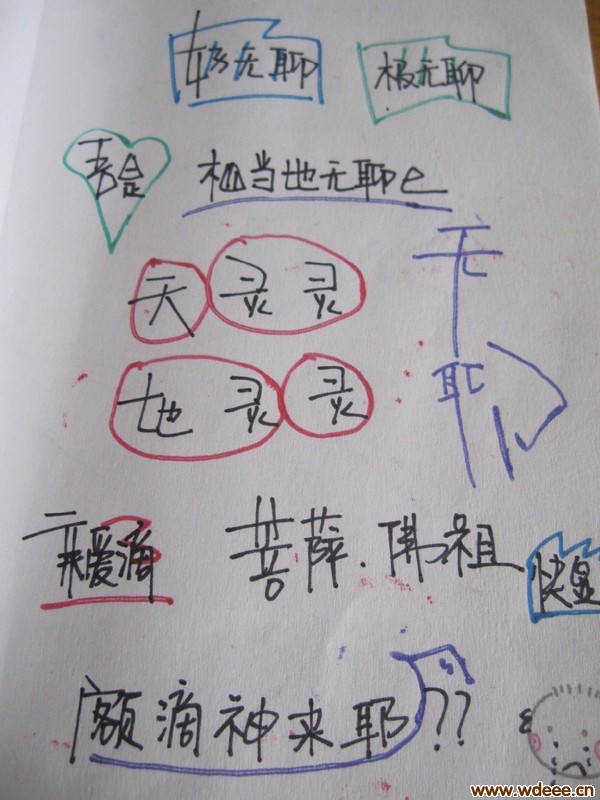 好无聊 极无聊
相当地无聊
无聊
天灵灵
地灵灵
亲爱滴 菩萨.佛祖 快显
额滴神来耶??
www.wdeee.cn